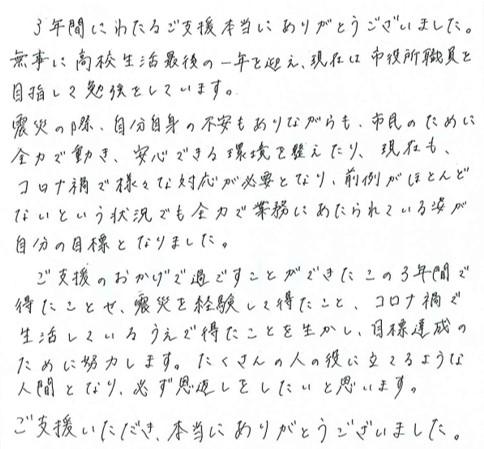 3年間にわたるご支援本当にありがとうございました。
無事に高校生活最後の一年を迎え、現在は市役所職員を
目指して勉強をしています。
震災の際、自分自身の不安もありながらも、市民のために
全力で動き、安心できる環境を整えたり、現在も、
コロナ禍で様々な対応が必要となり、前例がほとんど
ないという状況でも全力で業務にあたられている姿が
自分の目標となりました。
ご支援のおかげで過ごすことができたこの3年間で
得たことや、震災を経験して得たこと、コロナ禍で
生活しているうえで得たことを生かし、目標達成の
ために努力します。たくさんの人の役に立てるような
人間となり、必ず恩返しをしたいと思います。
ご支援いただき、本当にありがとうございました。